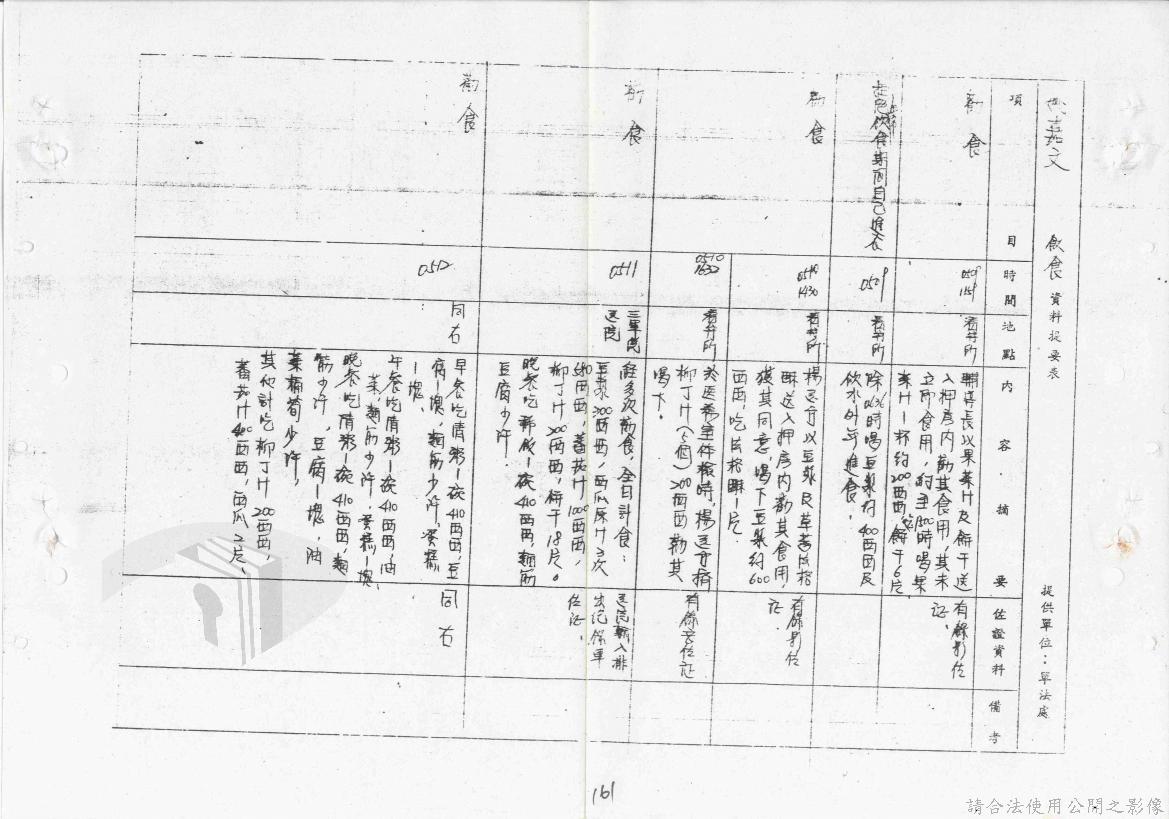 姚嘉文
飲食資料提要表
提供單位：軍法處
項目
時間
地點
內容摘要
佐證資料
備考
勸食
0509
1159
看守所
輔導長以果菜汁及餅干送
入押房內勸其食用，其未
立即食用，約至1800時喝果
菜汁一杯約200西西，餅干6片
有錄影佐
證，
飲食期間自己進食
0509
看守所
除0636時喝豆漿約400西西及
飲水外，無進食，
勸食
0510
1430
看守所
楊區隊以豆漿及草莓吐司
酥送入押房內勸其食用，
獲其同意，喝下豆漿約600
西西，吃吐司酥一片
有錄影佐
證
0510
1632
看守所
於醫務室体檢時，楊
柳丁汁（5個）200西西勸其
喝下。
有錄音佐証
勸食
0511
三軍總
醫院
經多次勸食，全日計食：
豆漿200西西，西瓜原汁3次
540西西，蕃茄汁1000西西，
柳丁汁200西西，餅干18片。
晚餐吃稀飯一碗410西西，麵筋
豆腐少許
醫院輸入排
出紀錄單
佐証，
勸食
0512
同右
早餐吃清粥一碗410西西，豆
腐一塊，麵筋少許，蛋糕
一塊、
午餐吃清粥一碗410西西，油
菜，麵筋少許，蛋糕一塊、
晚餐吃清粥一碗410西西，麵
筋少許，豆腐一塊，油
菜桶筍少許，
其他計吃柳丁汁200西西，
蕃茄汁400西西，西瓜2片、
同右
161
請合法使用公開之影像